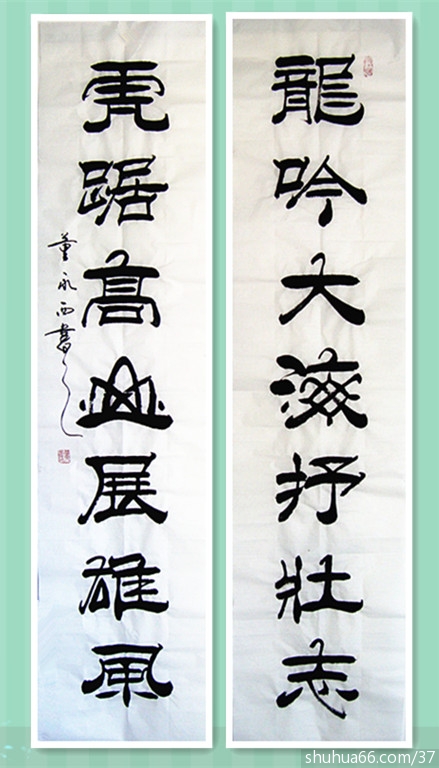 龍吟大海抒壯志
虎踞高山展雄風
董永西書
shuhua66.com/37